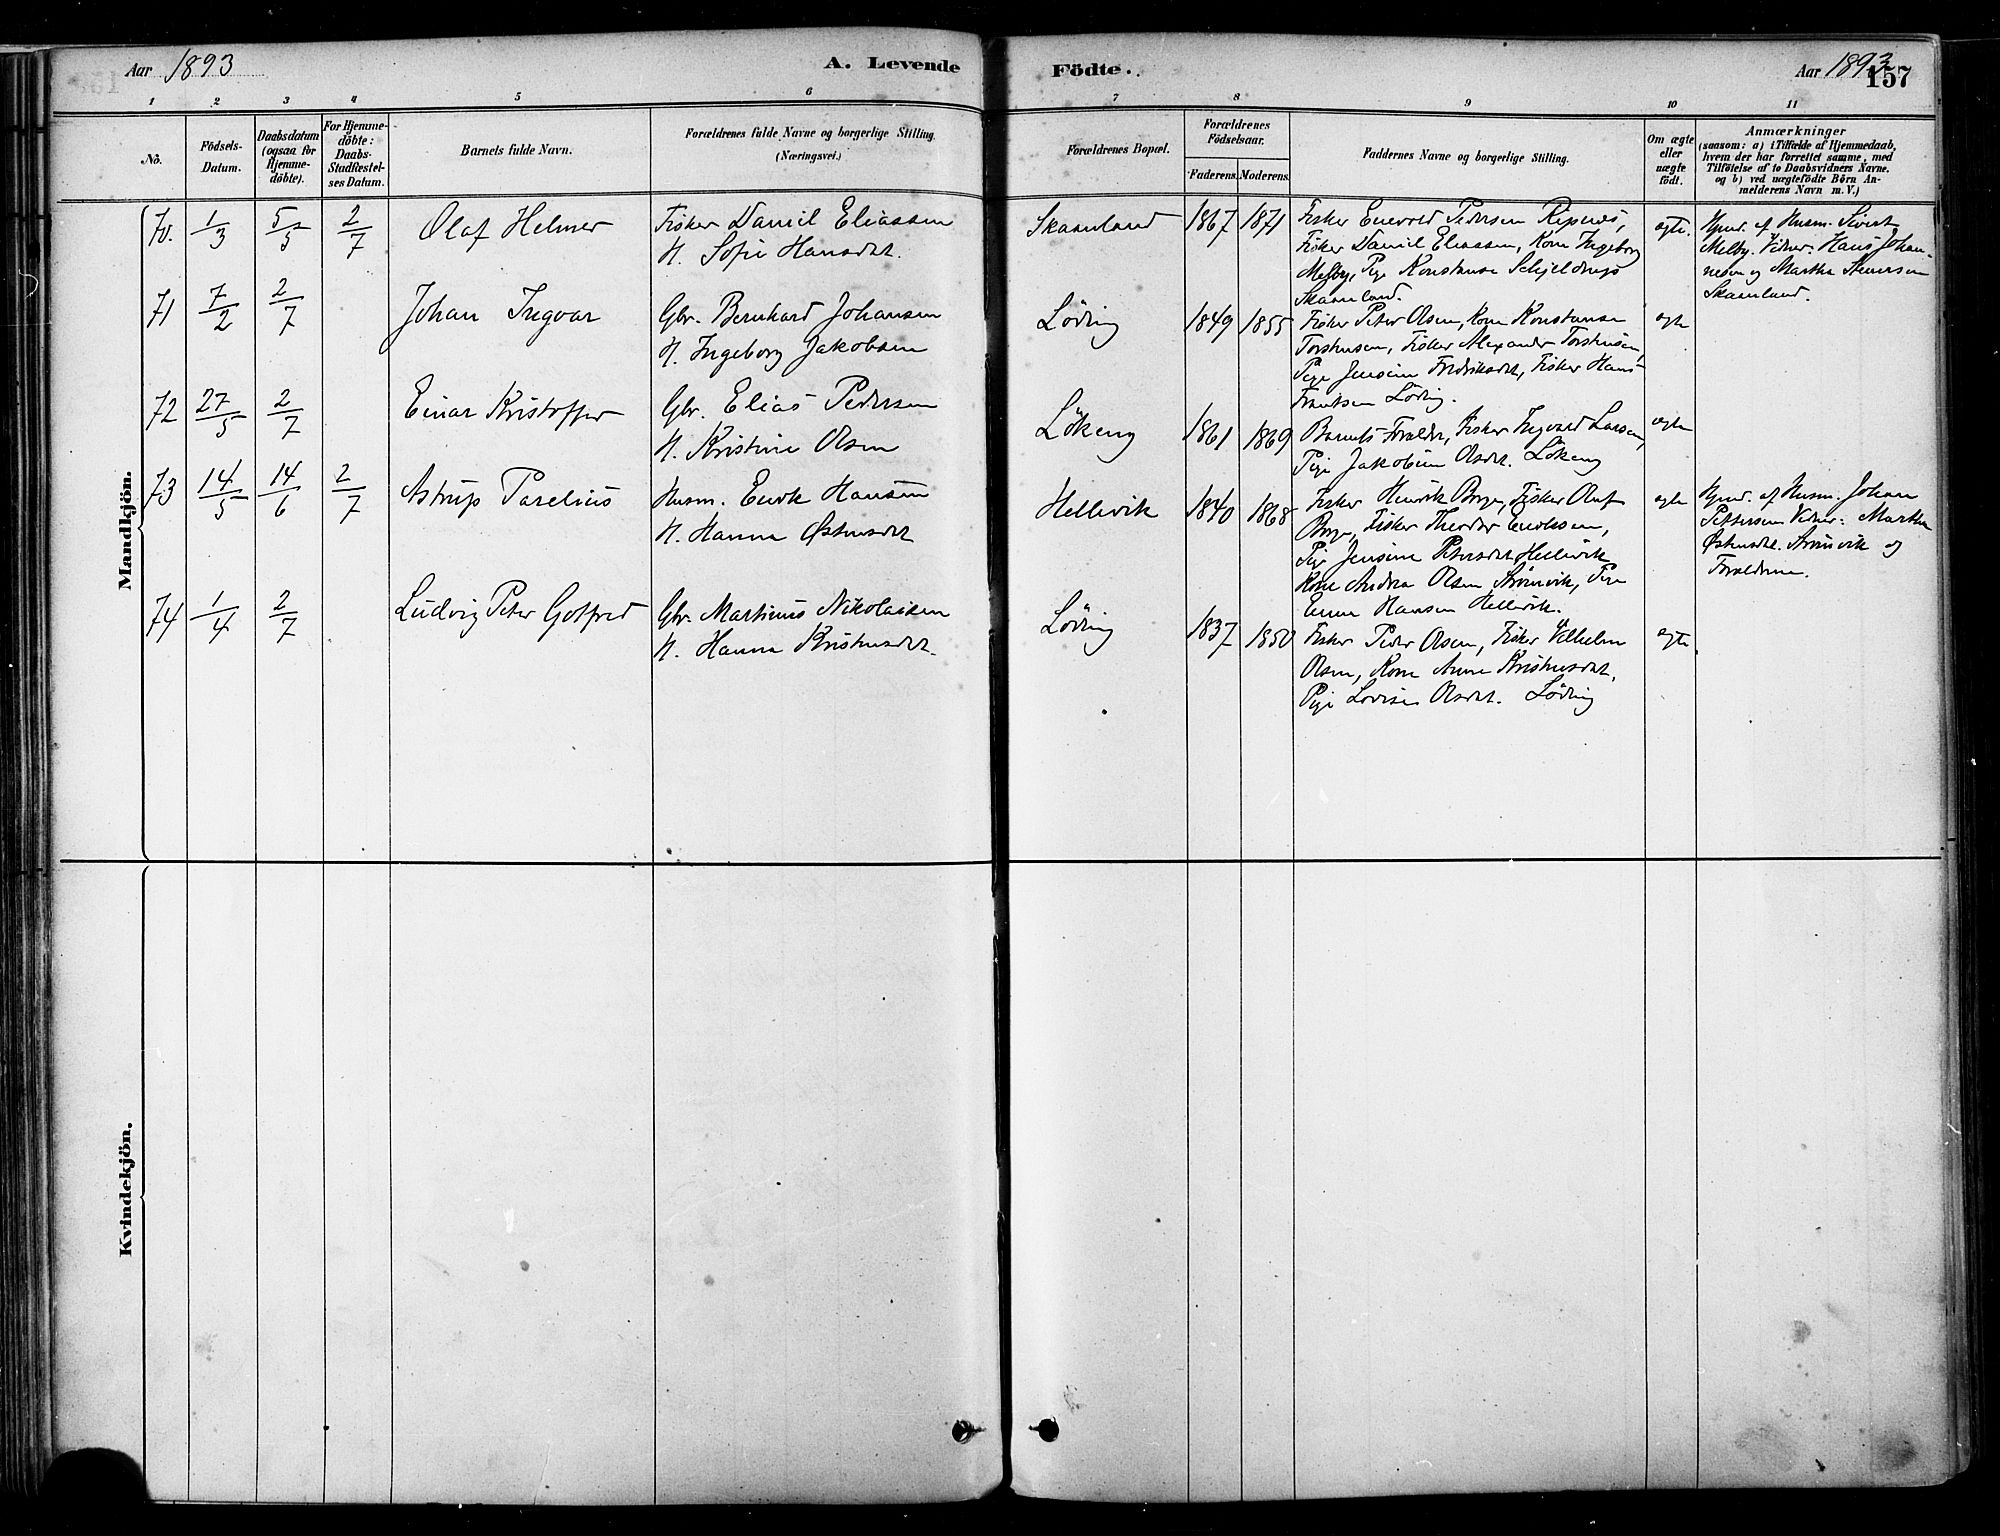 Aar 1893
A. Levende
Födte.
Aar 1893
157
1 2 3 4 5 6 7 8 9 10 11
No.
Födsels-
Datum.
Daabsdatum
(ogsaa for
Hjemme-
döbte).
For Hjemme-
döbte:
Daabs-
Stadfæstel-
ses Datum.
Barnets fulde Navn.
Forældrenes fulde Navne og borgerlige Stilling.
(Næringsvei.)
Forældrenes Bopæl.
Forældrenes
Födselsaar.
Faderens. Moderens.
Faddernes Navne og borgerlige Stilling.
Om ægte
eller
uægte
födt.
Anmærkninger
(saasom: a) i Tilfælde af Hjemmedaab,
hvem der har forrettet samme, med
Tilföielse af to Daabsvidners Navne.
og b) ved uægtefödte Börn An-
melderens Navn m. V.)
Mandkjön.
70. 1/3 5/5 2/7 Olaf Helmer
Fisker Daniel Eliassen
H. Sofie Hansdat.
Skaanland 1867 1871
Fisker Enevold Pedersen Ripenes,
Fisker Daniel Eliassen, Kone Ingeborg
Melby, Pige Konstanse Schjeldrup
Skaanland.
ægte.
Hjmd. af Husm. Sivert
Melby. Vidner. Hans Johan-
nesen og Martha Steversen
Skaanland.
71 7/2 2/7 Johan Ingvar
Gbr. Bernhard Johansen
H. Ingeborg Jakobsen
Löding 1849 1855
Fisker Peter Olsen, Kone Konstanse
Torstensen, Fisker Alexander Torstensen,
Pige Jensine Fredriksdat, Fisker Hans
Frantsen Löding.
ægte
72 27/5 2/7 Einar Kristoffer
Gbr. Elias Pedersen
H. Kristine Olsen
Lökeng 1861 1869
Barnets Forældre, Fisker Ingvard Larsen,
Pige Jakobine Olsdat. Lökeng
ægte
73 14/5 14/6 2/7 Astrup Parelius
Husm. Enok Hansen
H. Hanna Østensdat
Hellevik 1840 1868
Fisker Henrik Borge, Fisker Oluf
Borge, Fisker Theodor Enoksen,
Pige Jensine Petersdat Hellevik
Kone Andrea Olsen Strömvik, Pige
Hansen Hellevik.
ægte
Hjmd. af Husm. Johan
Pettersen Vidner: Martha
Østensdat. Strömvik og
Forældrene.
74 1/4 2/7 Ludvig Peter Gotfred
Gbr. Martinus Nikolaisen
H. Hanna Kristensdat.
Löding 1837 1850
Fisker Peder Olsen, Fisker Vilhelm
Olsen, Kone Anne Kristensdat,
Pige Lovise Olsdat. Löding
ægte.
Kvindekjön.